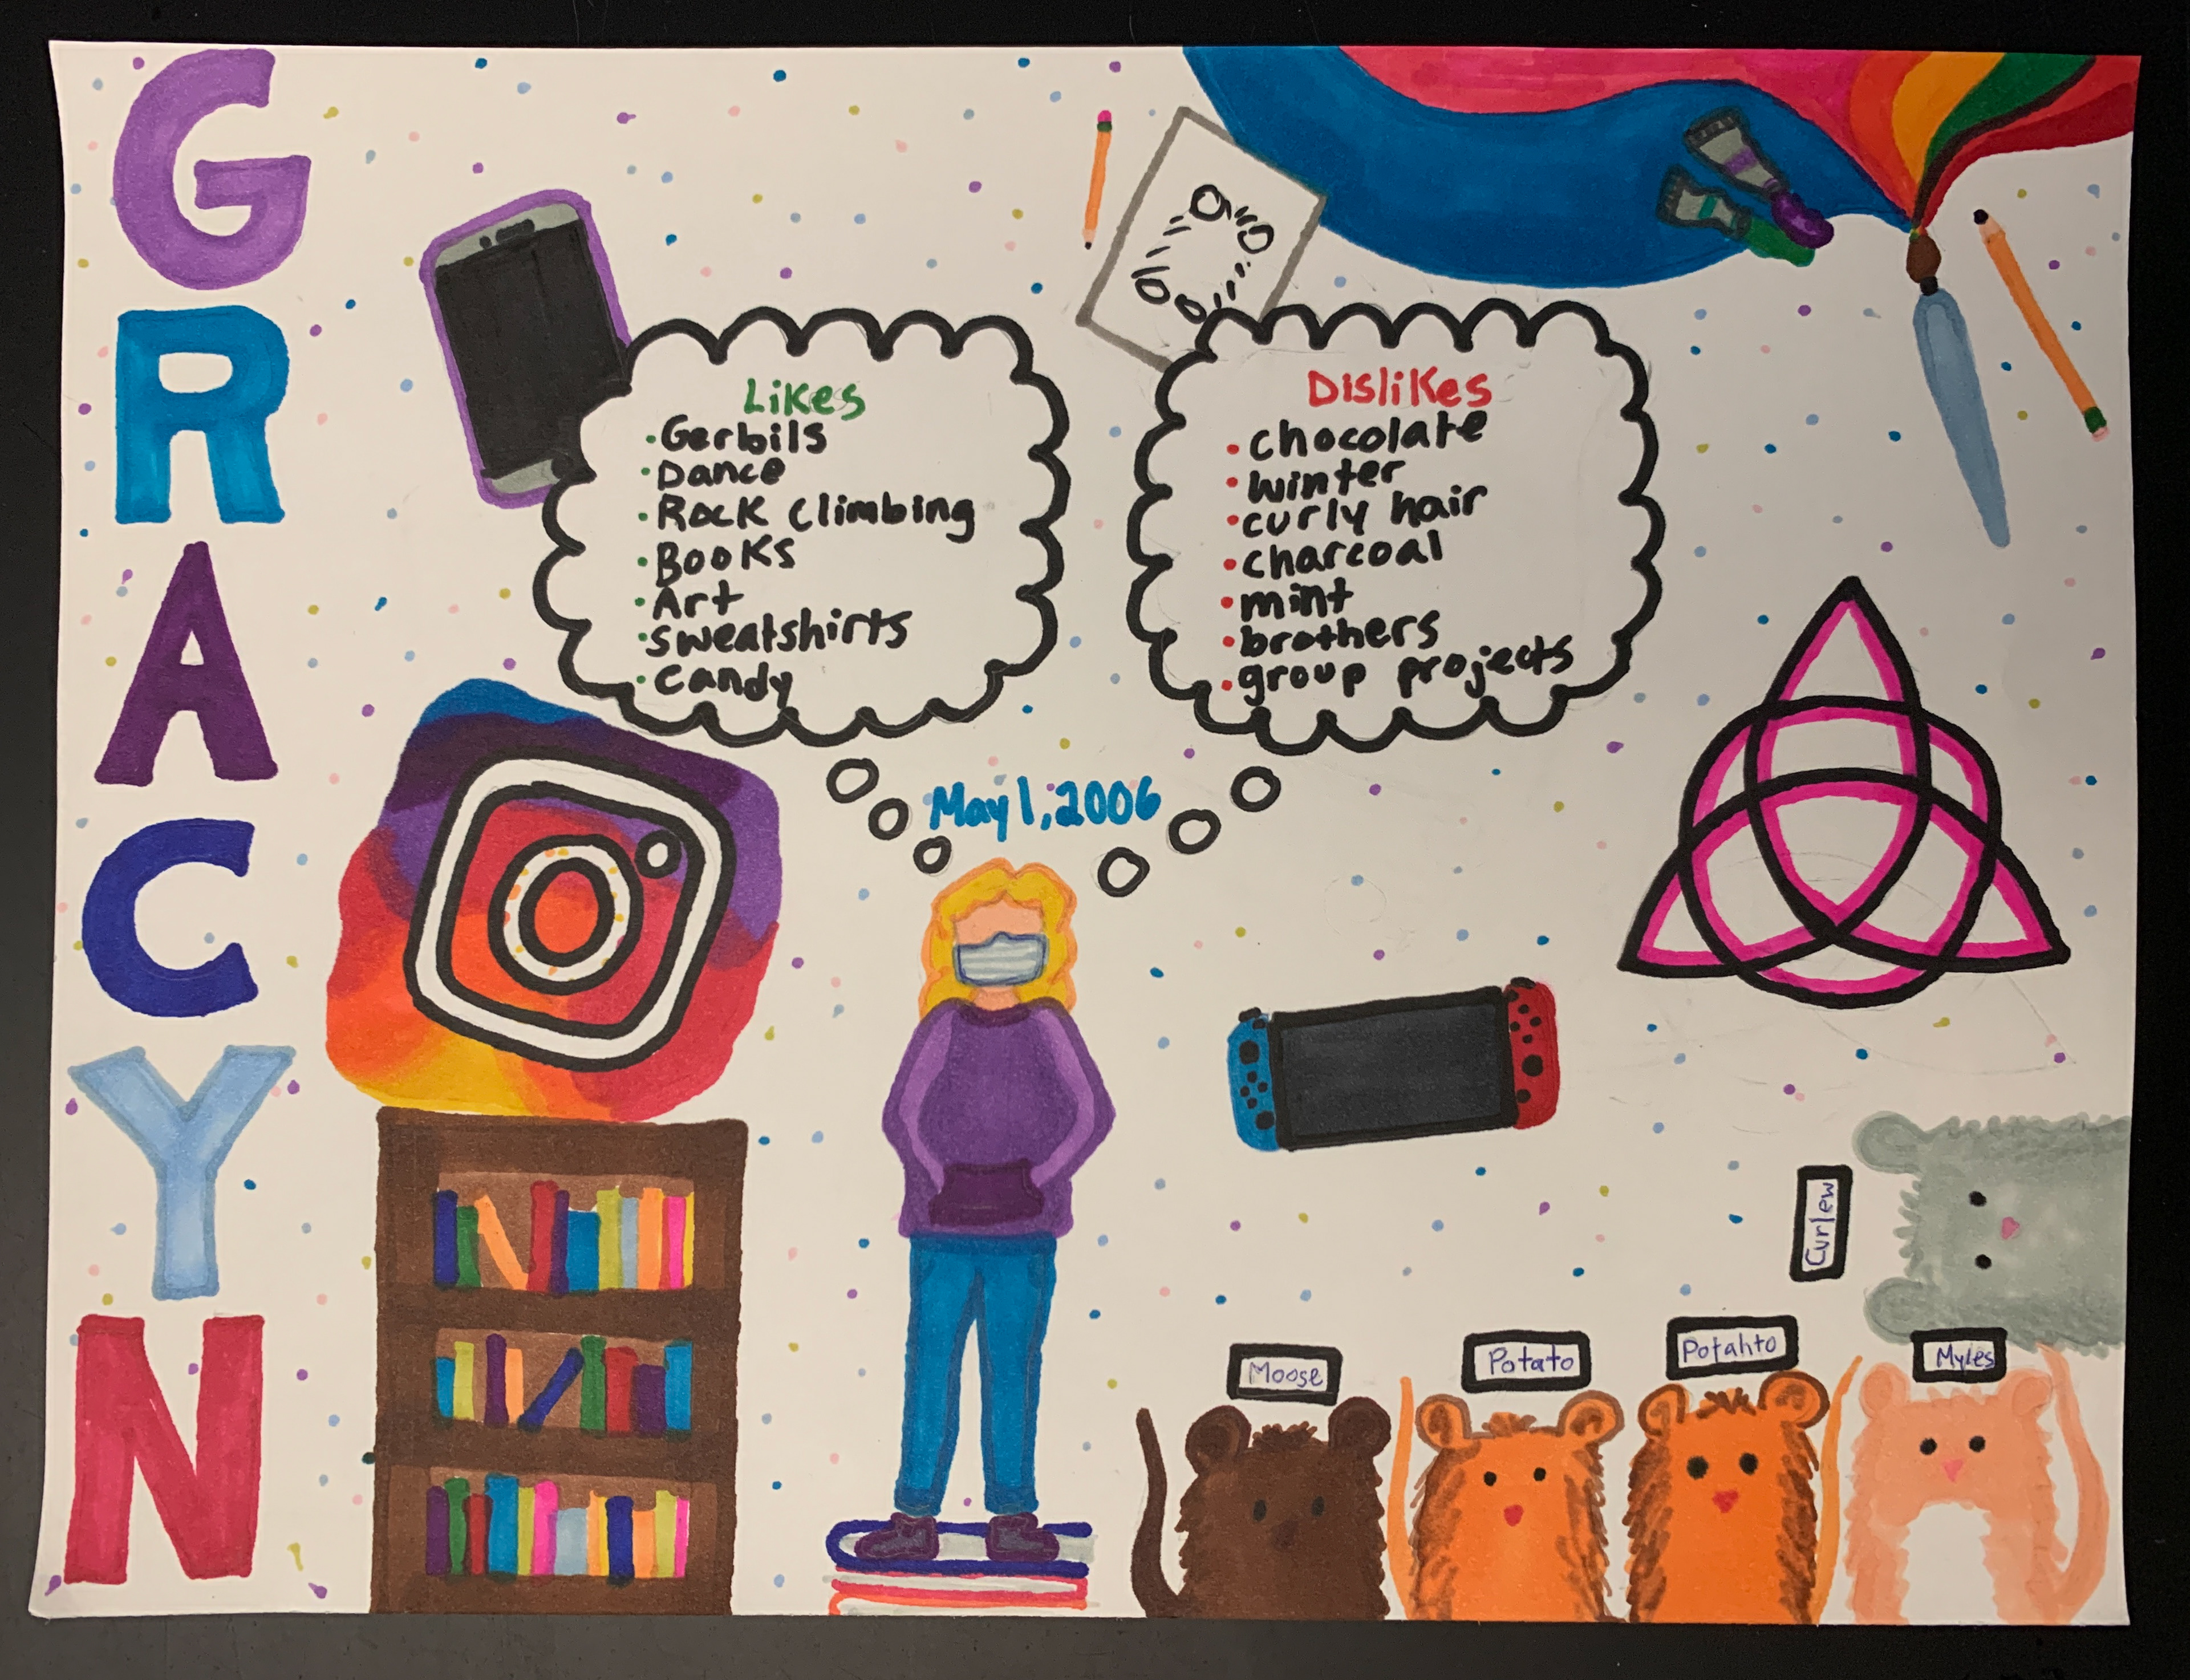 GRACYN
Likes
• Gerbils
• Dance
• Rock climbing
• Books
• Art
• sweatshirts
• candy
Dislikes
• chocolate
• winter
• curly hair
• charcoal
• mint
• brothers
• group projects
May 1, 2006
Curlew
Moose
Potato
Potahto
Myles